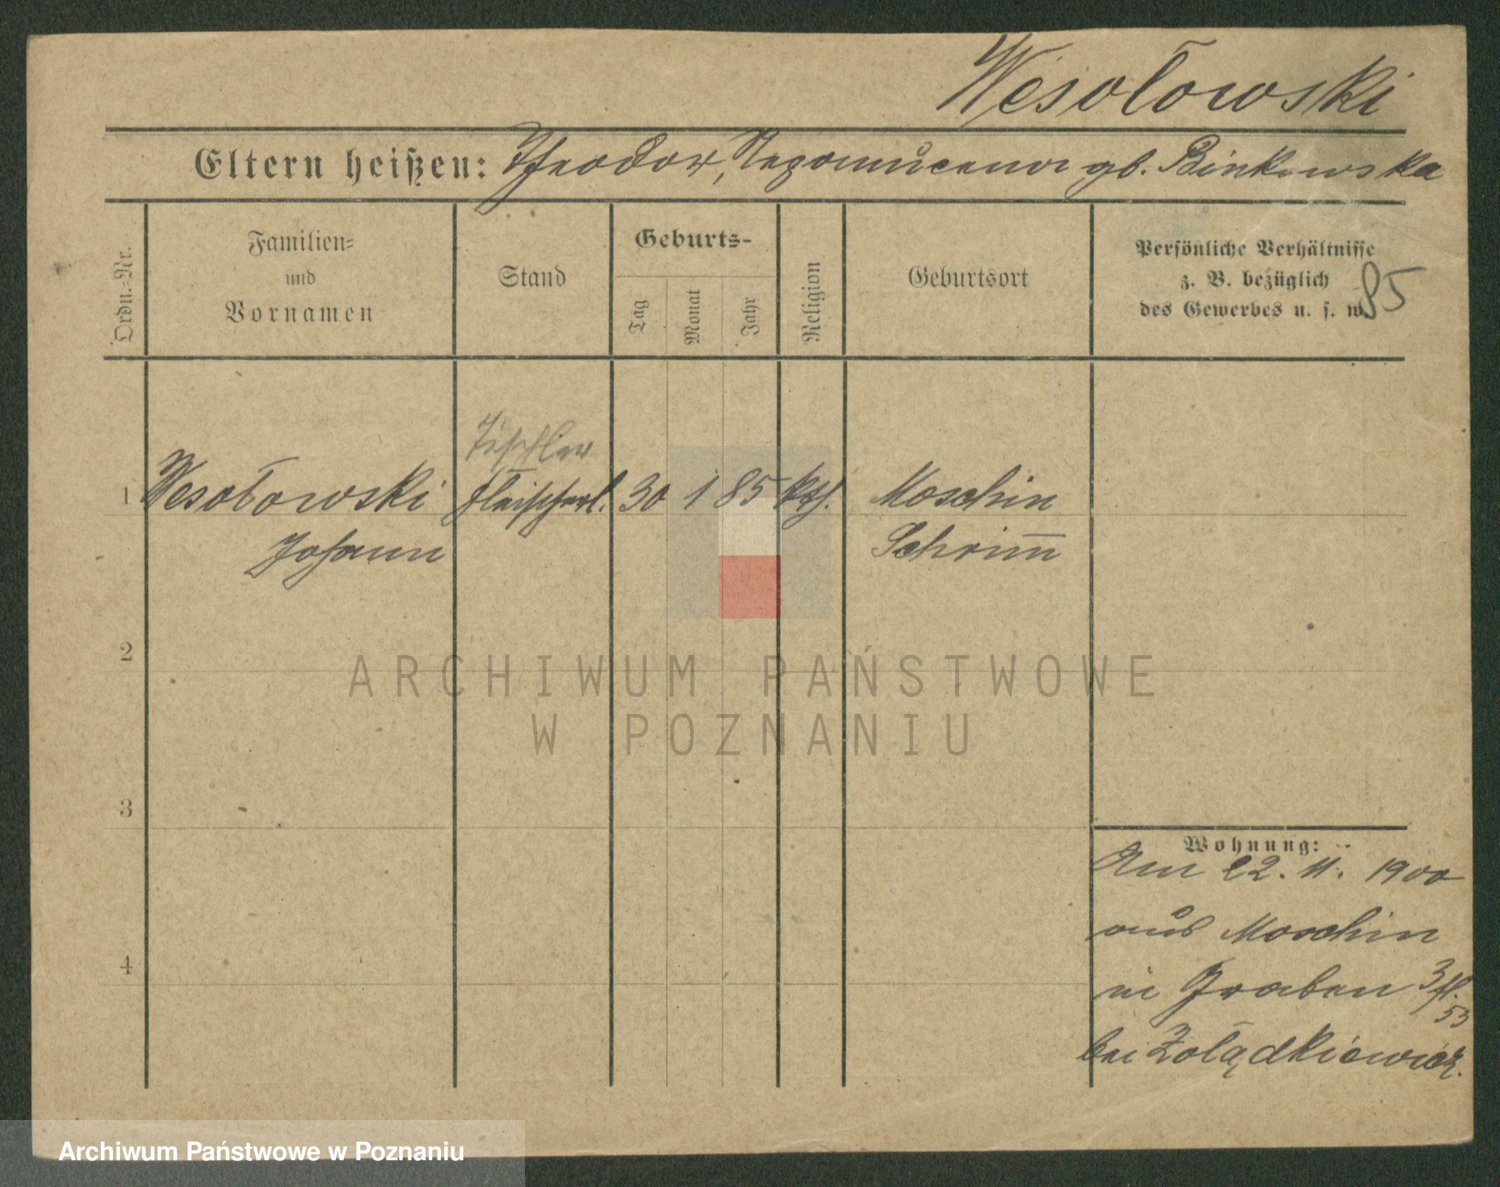 Wesołowski
Eltern heißen: Theodor, Nepomucena gb. Binkowska
Ordn.-Nr.
Familien-
und
Vornamen
Stand
Geburts-
Tag
Monat
Jahr
Religion
Geburtsort
Persönliche Verhältnisse
z. B. bezüglich
des Gewerbes u. s. w.
85
Tischler
1 Wesołowski Fleischerl. 30 1 85 kth. Moschin
Johann Schrimm
2
3
4
Wohnung:
Am 22. 11. 1900
aus Moschin
in Graben 3
53
bei Żołądkiewicz.
ARCHIWUM PAŃSTWOWE
W POZNANIU
Archiwum Państwowe w Poznaniu